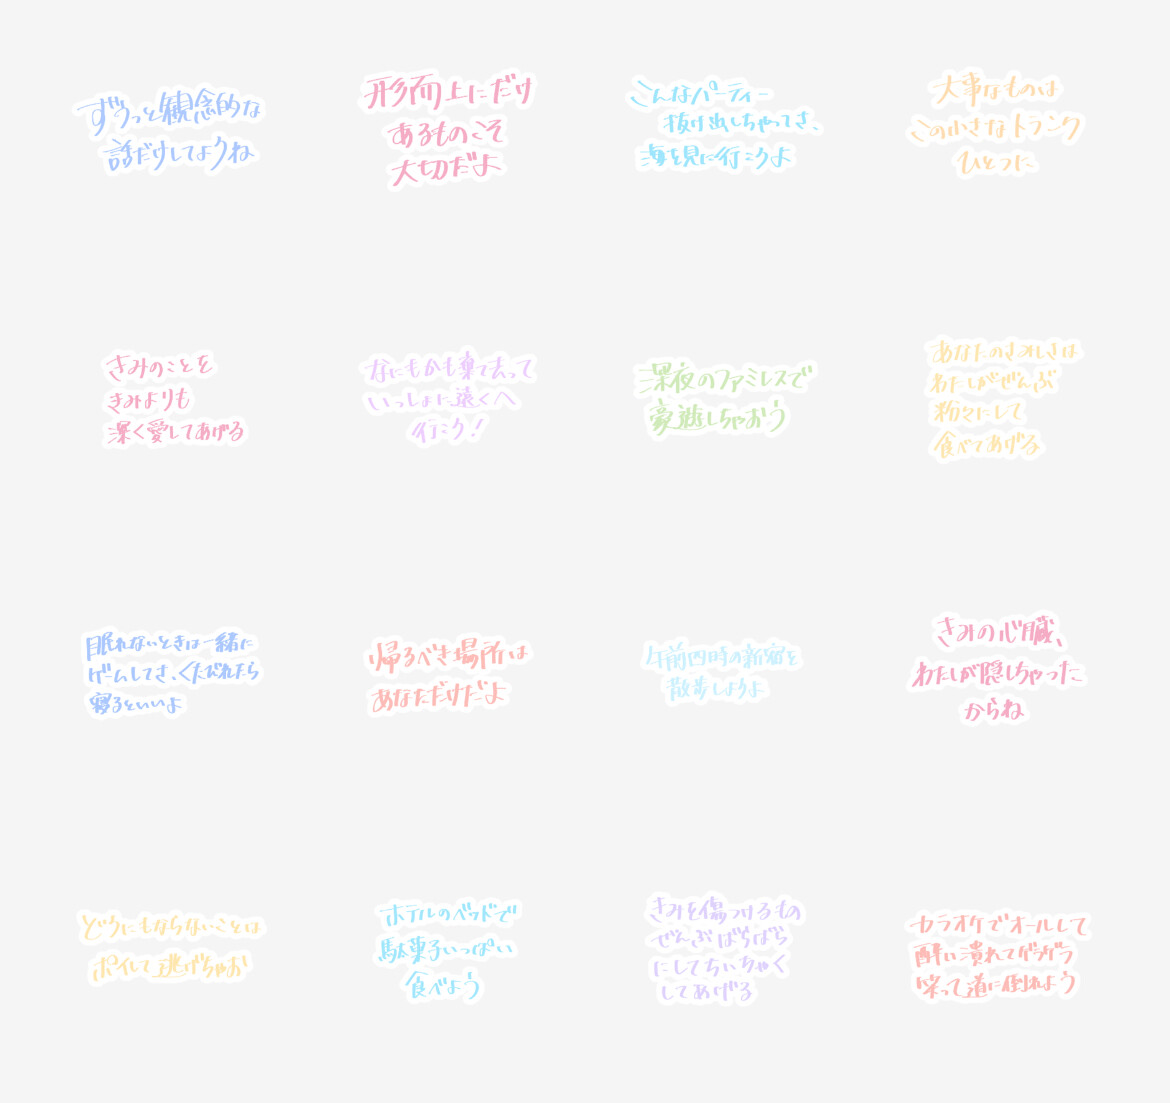 ずうっと観念的な
話だけしてようね
形而上にだけ
あるものこそ
大切だよ
こんなパーティー
抜け出しちゃってさ、
海を見に行こうよ
大事なものは
この小さなトランク
ひとつに
きみのことを
きみよりも
深く愛してあげる
なにもかも棄て去って
いっしょに遠くへ
行こう！
深夜のファミレスで
豪遊しちゃおう
あなたのさみしさは
わたしがぜんぶ
粉々にして
食べてあげる
眠れないときは一緒に
ゲームしてさ、くたびれたら
寝るといいよ
帰るべき場所は
あなただけだよ
午前四時の新宿を
散歩しようよ
きみの心臓、
わたしが隠しちゃった
からね
どうにもならないことは
ポイして逃げちゃお
ホテルのベッドで
駄菓子いっぱい
食べよう
きみを傷つけるもの
ぜんぶばらばら
にしてちいちゃく
してあげる
カラオケでオールして
酔い潰れてゲラゲラ
笑って道に倒れよう